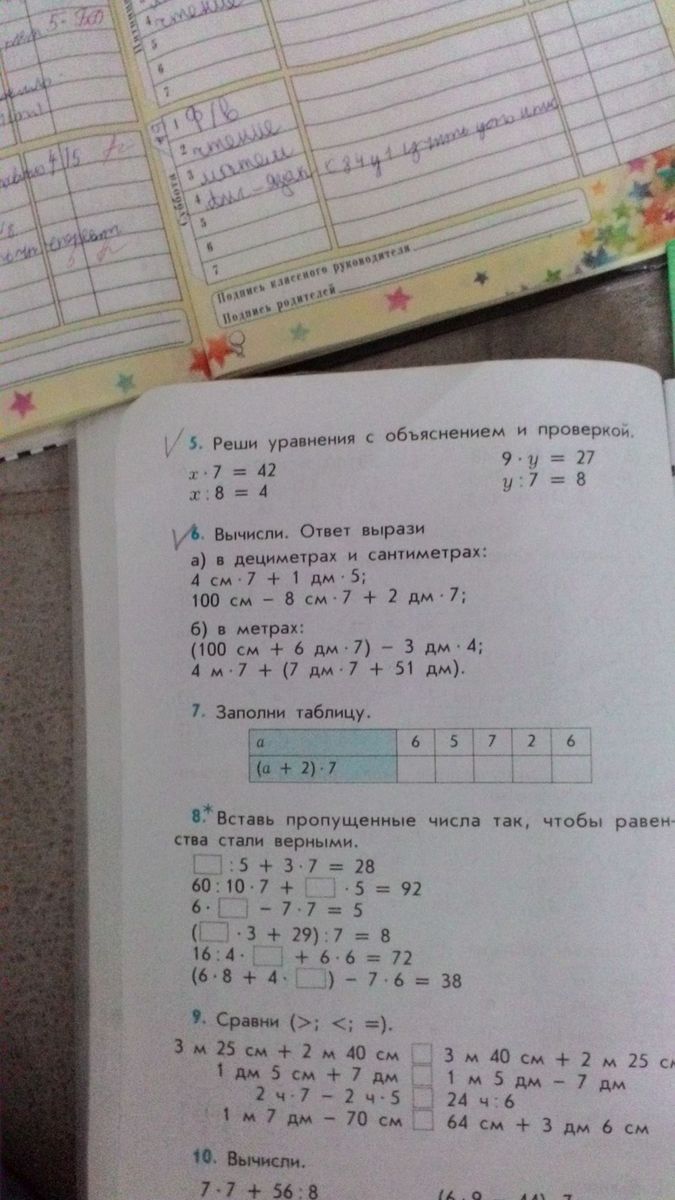 5 - 
4 чтение
5
6
7
Суббота
1 ф/в
2 чтение
3 матем
4
5
6
7
4/5
Подпись классного руководителя
Подпись родителей
5. Реши уравнения с объяснением и проверкой.
x · 7 = 42 9 · y = 27
x : 8 = 4 y : 7 = 8
6. Вычисли. Ответ вырази
а) в дециметрах и сантиметрах:
4 см · 7 + 1 дм · 5;
100 см − 8 см · 7 + 2 дм · 7;
б) в метрах:
(100 см + 6 дм · 7) − 3 дм · 4;
4 м · 7 + (7 дм · 7 + 51 дм).
7. Заполни таблицу.
a 6 5 7 2 6
(a + 2) · 7
8.* Вставь пропущенные числа так, чтобы равен-
ства стали верными.
□ : 5 + 3 · 7 = 28
60 : 10 · 7 + □ · 5 = 92
6 · □ − 7 · 7 = 5
(□ · 3 + 29) : 7 = 8
16 : 4 · □ + 6 · 6 = 72
(6 · 8 + 4 · □) − 7 · 6 = 38
9. Сравни (>; <; =).
3 м 25 см + 2 м 40 см □ 3 м 40 см + 2 м 25 см
1 дм 5 см + 7 дм □ 1 м 5 дм − 7 дм
2 ч · 7 − 2 ч · 5 □ 24 ч : 6
1 м 7 дм − 70 см □ 64 см + 3 дм 6 см
10. Вычисли.
7 · 7 + 56 : 8